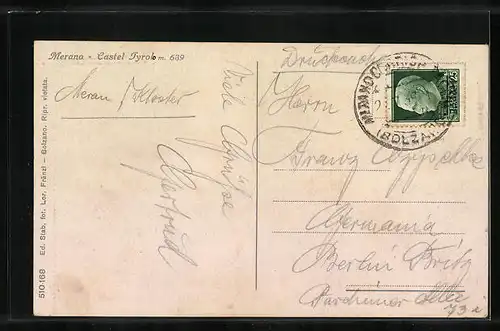 Merano - Castel Tyrolo m. 639
Meran / Kloster
Viele Grüße
Gertrud
Ed. Stab. fot. Lor. Fränzl - Bolzano. Ripr. vietata.
510-168
Drucksache
MERANO
(BOLZANO)
25
Herrn
Franz
Germania
Berlin Britz
Parchimer Allee
73